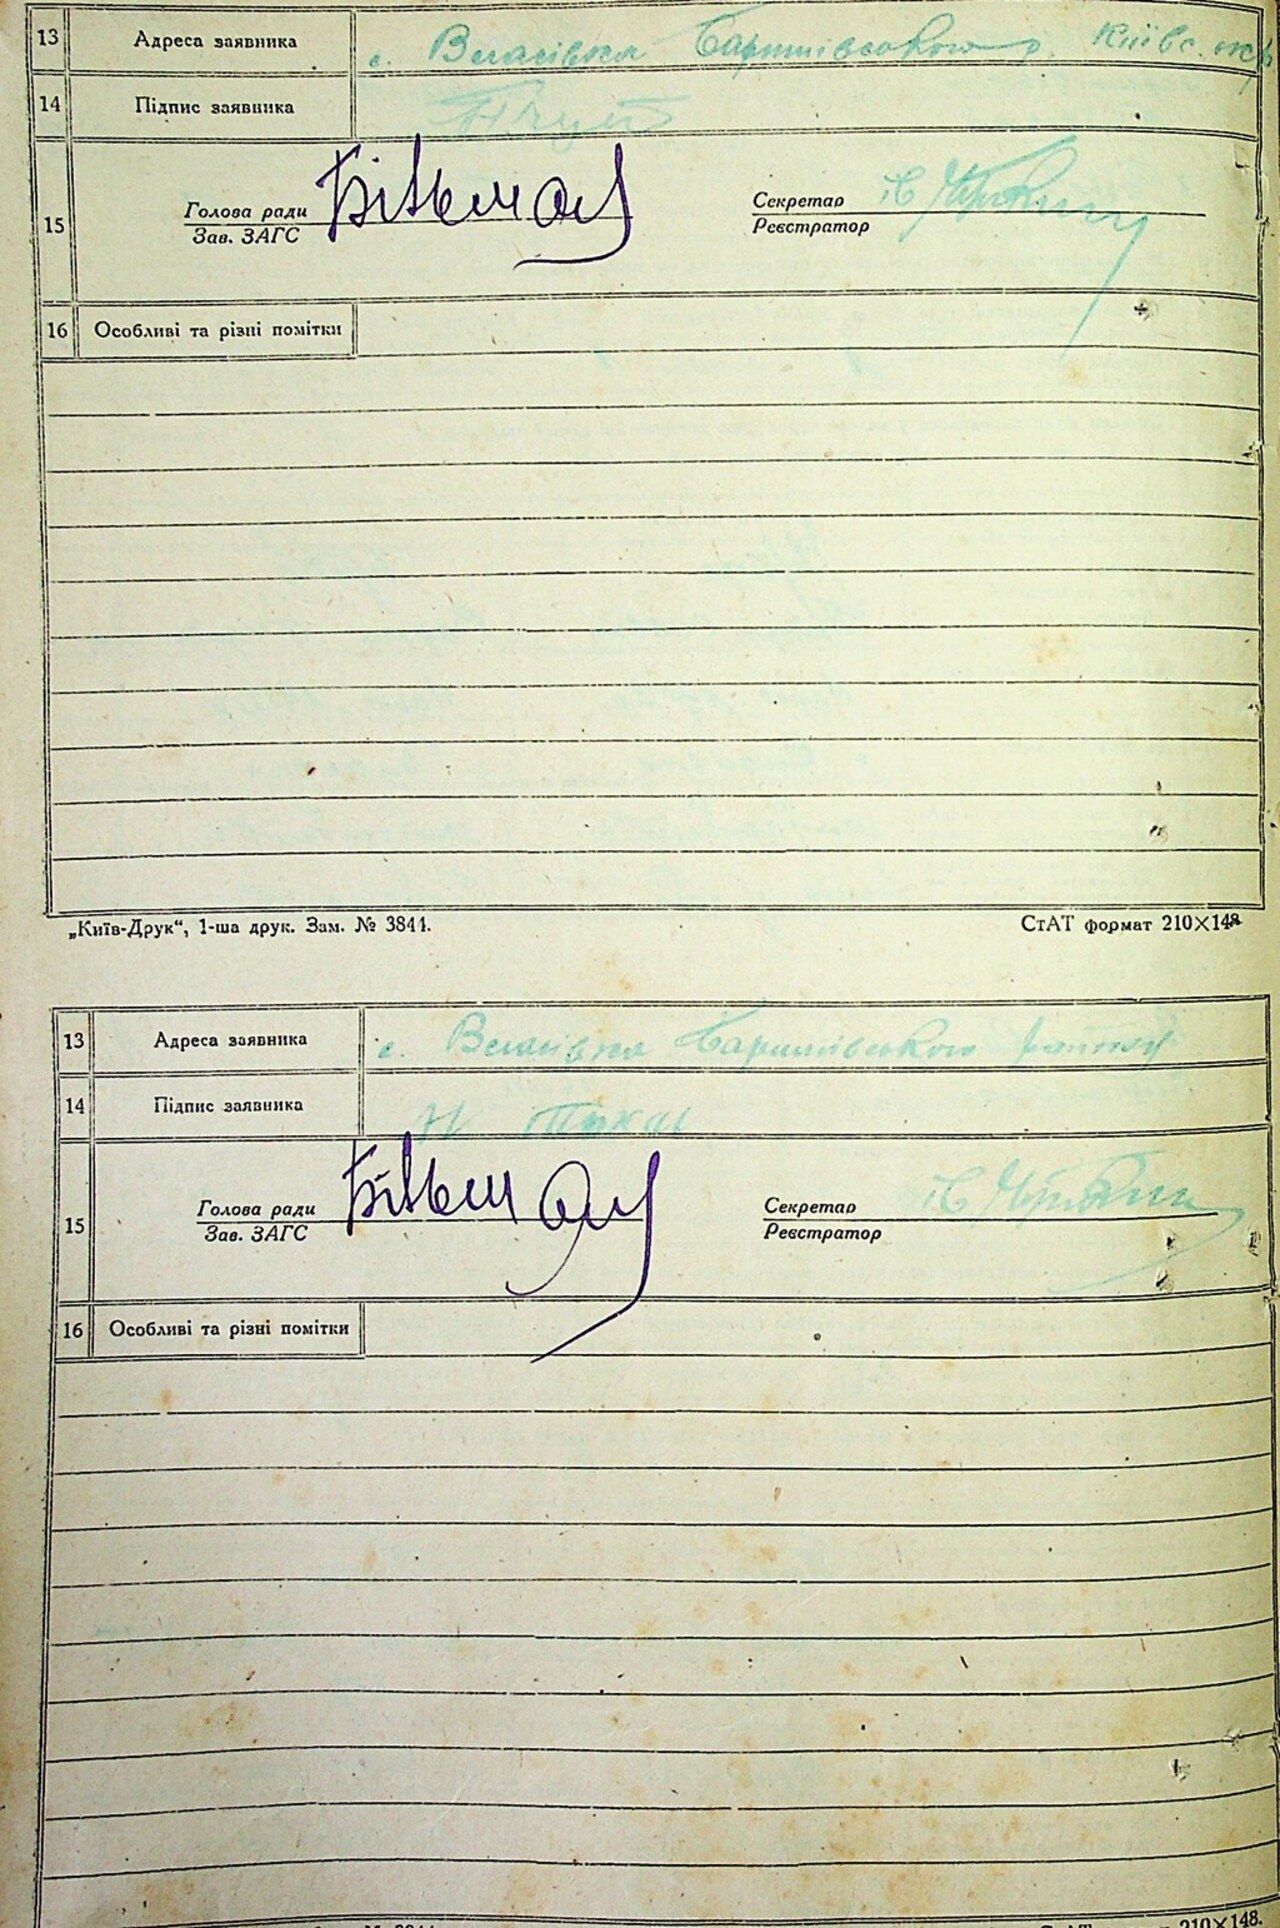 13 Адреса заявника с. Власівка Баришівського р. Київс. окр
14 Підпис заявника
15 Голова ради Секретар
Зав. ЗАГС Реєстратор
16 Особливі та різні помітки
„Київ-Друк“, 1-ша друк. Зам. № 3844. СтАТ формат 210×148
13 Адреса заявника с. Власівка Баришівського району
14 Підпис заявника
15 Голова ради Секретар
Зав. ЗАГС Реєстратор
16 Особливі та різні помітки
210×148.